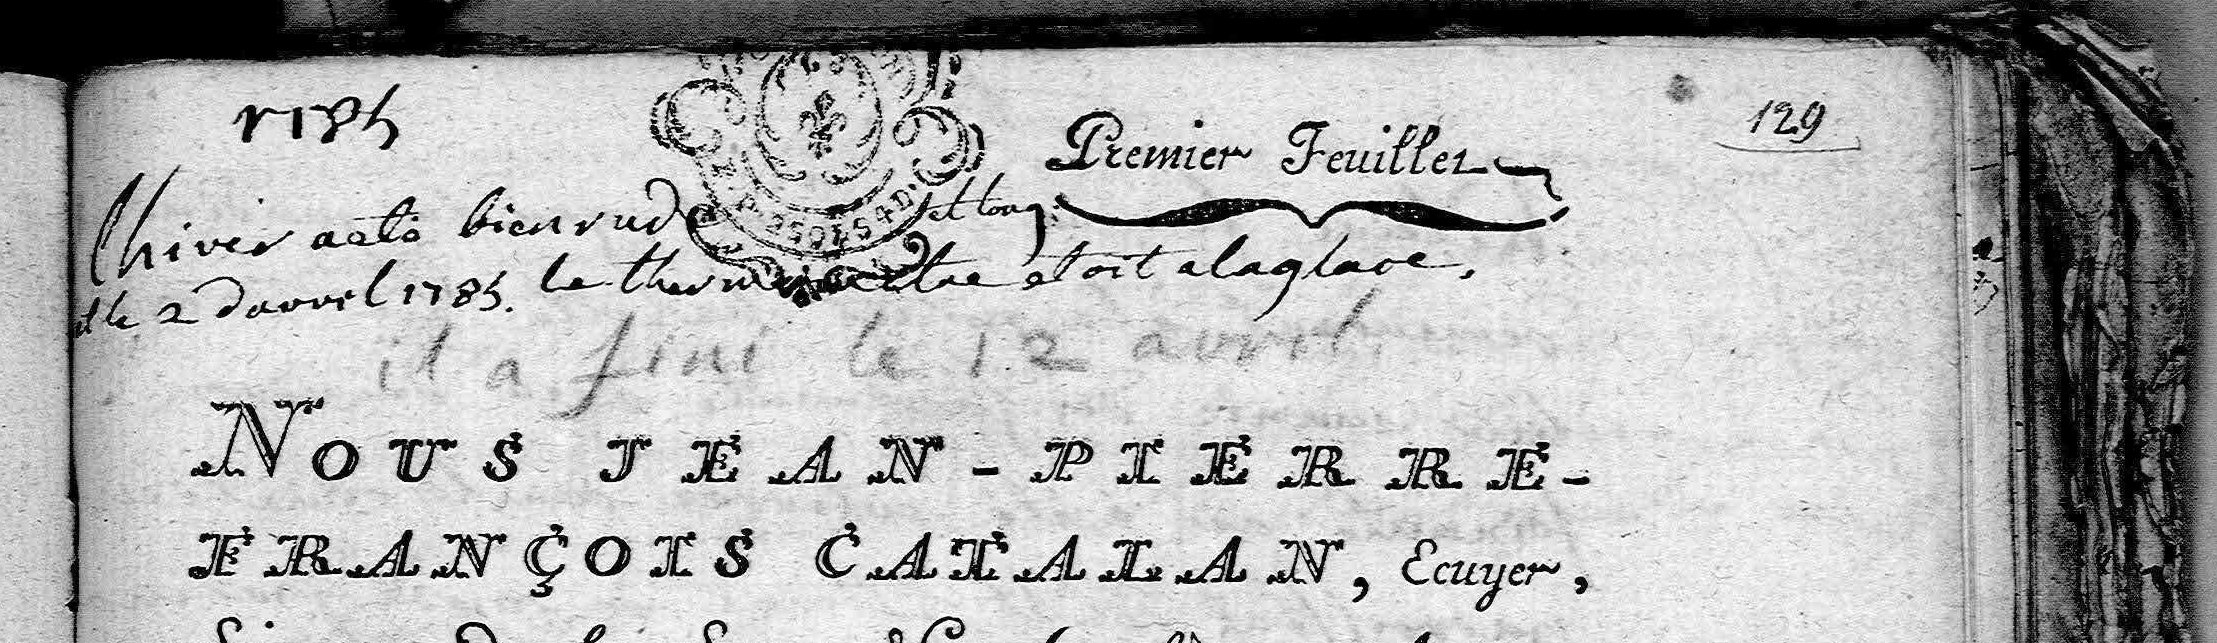 1785
Premier Feuillet
129
lhiver aeté bien rude et long
et le 2 davvril 1785. le thermometre etoit alaglace.
il a fini le 12 avvril.
NOUS JEAN-PIERRE-
FRANÇOIS CATALAN, Ecuyer,